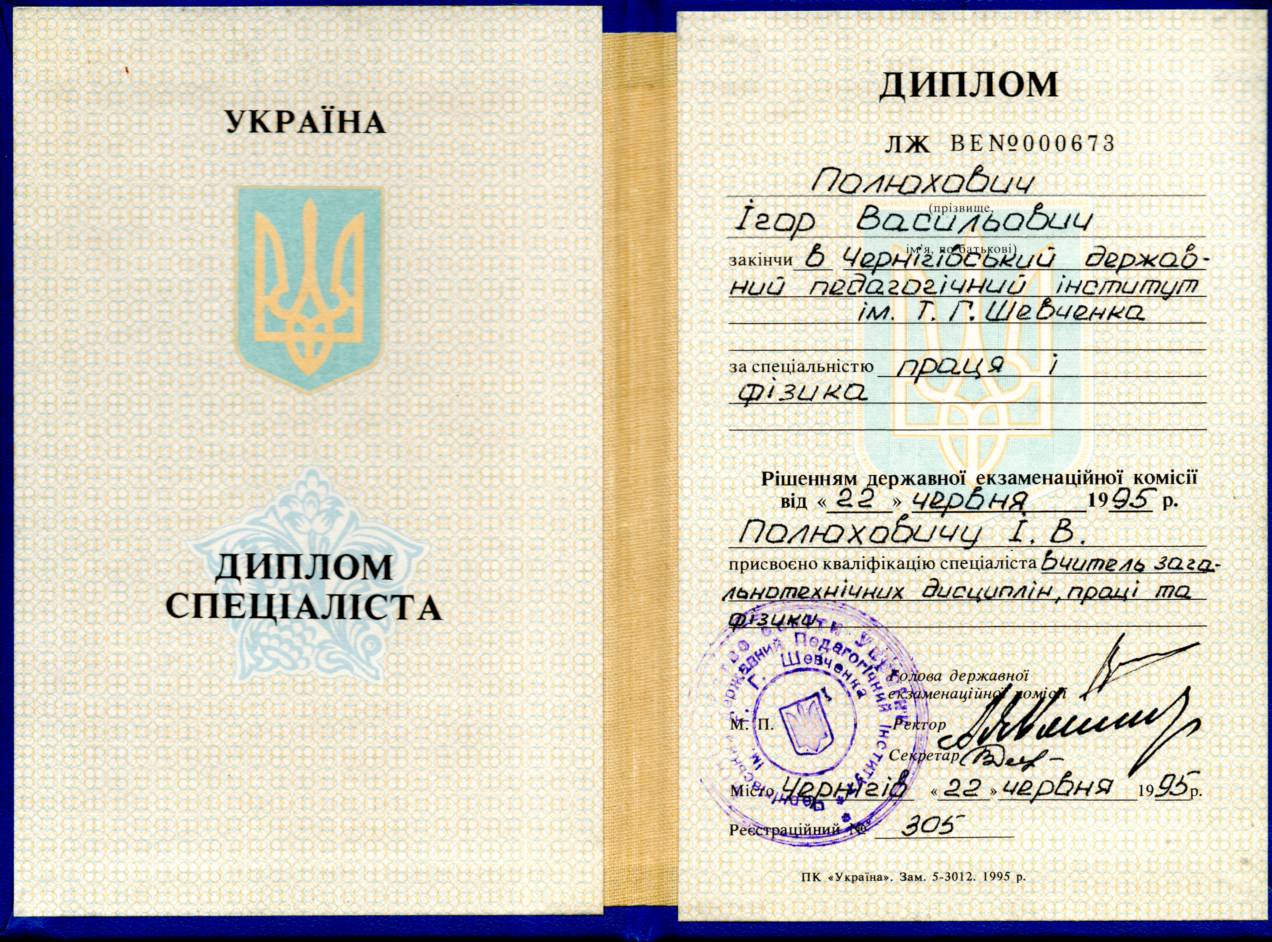 УКРАЇНА
ДИПЛОМ
СПЕЦІАЛІСТА
ДИПЛОМ
ЛЖ ВЕ№000673
Полюхович
(прізвище,
Ігор Васильович
ім'я, по батькові)
закінчи в Чернігівський держав-
ний педагогічний інститут
ім. Т. Г. Шевченка
за спеціальністю праця і
фізика
Рішенням державної екзаменаційної комісії
від «22» червня 1995 р.
Полюховичу І. В.
присвоєно кваліфікацію спеціаліста вчитель зага-
льнотехнічних дисциплін, праці та
фізики
Голова державної
екзаменаційної комісії
М. П. Ректор
Секретар
Місто Чернігів «22» червня 1995р.
Реєстраційний № 305
Державний Педагогічний Інститут
ім. Т. Г. Шевченка
ПК «Україна». Зам. 5-3012. 1995 р.